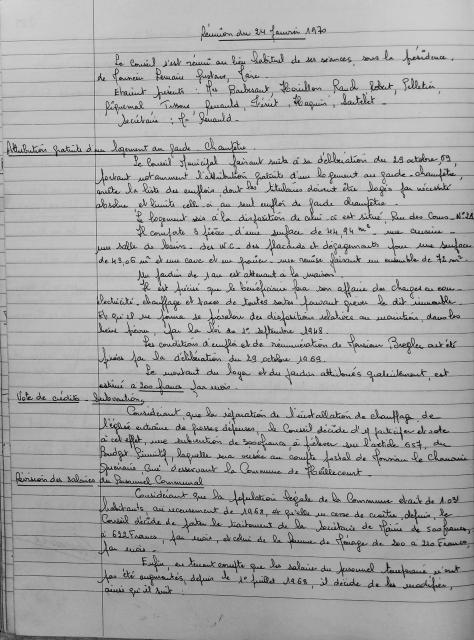 Réunion du 24 Janvier 1970
Le Conseil s'est réuni au lieu habituel de ses séances, sous la présidence
de Monsieur Lemaire Gustave, Maire.
Etaient présents : Mrs Barbesant, Haillon Raud, Robert, Pelletier,
Tissone, Renauld, Haquin, Sautelet.
Secrétaire : Mr Renauld.
Attribution gratuite d'un logement au garde-Champêtre.
Le Conseil Municipal faisant suite à sa délibération du 29 octobre 69
portant notamment l'attribution gratuite d'un logement au garde-champêtre,
arrête la liste des emplois, dont les titulaires doivent être logés par nécessité
absolue et limite celle-ci au seul emploi de garde champêtre.
Le logement mis à la disposition de celui-ci est situé, Rue des Cours N° 28
Il comporte 3 pièces d'une surface de 44,94 m² une cuisine
une salle de bains, des W.C. des placards et dégagements pour une surface
de 43,06 m² et une cave et un grenier, une remise faisant un ensemble de 72 m².
Un jardin de 1 are est attenant à la maison.
Il est précisé que le bénéficiaire fera son affaire des charges en eau
électricité, chauffage et taxes de toutes sortes pouvant grever le dit immeuble.
Et qu'il ne pourra se prévaloir des dispositions relatives au maintien, dans les
lieux prévus, par la loi du 1er septembre 1948.
Les conditions d'emploi et de rémunération de Monsieur ont été
fixées par la délibération du 29 octobre 1969.
Le montant du loyer et du jardin attribués gratuitement, est
estimé à 200 francs par mois.
Vote de crédits - Subventions
Considérant, que la réparation de l'installation de chauffage de
l'église entraîne de grosses dépenses, le Conseil décide d'y participer et vote
à cet effet, une subvention de 500 francs à prélever sur l'article 657, du
Budget Primitif, laquelle sera versée au compte postal de Monsieur le Chanoine
qui desservant la Commune de Heillecourt.
Révision des salaires du Personnel Communal
Considérant que la population légale de la Commune était de 1.031
habitants, au recensement de 1968, et qu'elle ne cesse de croître, depuis, le
Conseil décide de porter le traitement de la Secrétaire de Mairie de 500 francs,
à 622 Francs, par mois, et celui de la femme de Ménage de 200 à 210 Francs,
par mois.
Enfin, en tenant compte que les salaires du personnel temporaire n'ont
pas été augmentés, depuis le 1er juillet 1968, il décide de les modifier,
ainsi qu'il suit